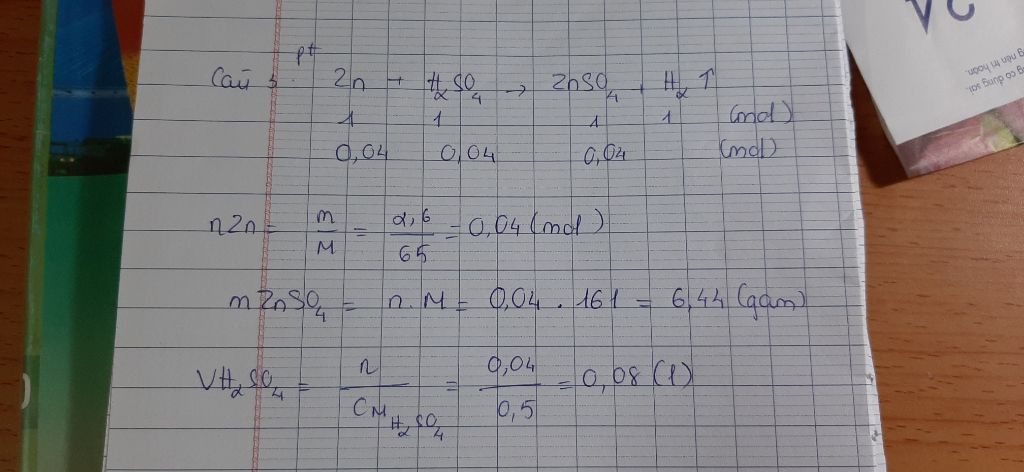 pt
Câu 3. Zn + H₂SO₄ → ZnSO₄ + H₂ ↑
1 1 1 1 (mol)
0,04 0,04 0,04 (mol)
nZn = m/M = 2,6/65 = 0,04 (mol)
m ZnSO₄ = n.M = 0,04 . 161 = 6,44 (gam)
VH₂SO₄ = n/CM H₂SO₄ = 0,04/0,5 = 0,08 (l)
2A